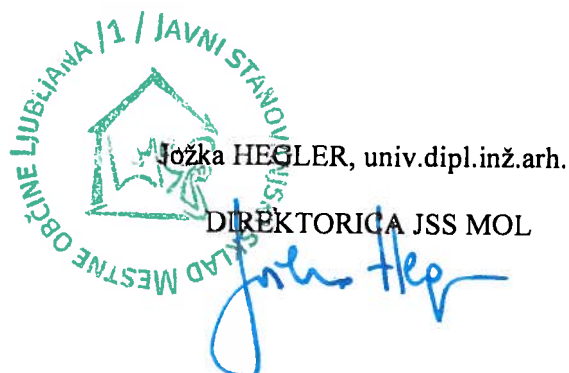 JAVNI STANOVANJSKI SKLAD MESTNE OBČINE LJUBLJANA /1/
Jožka HEGLER, univ.dipl.inž.arh.
DIREKTORICA JSS MOL